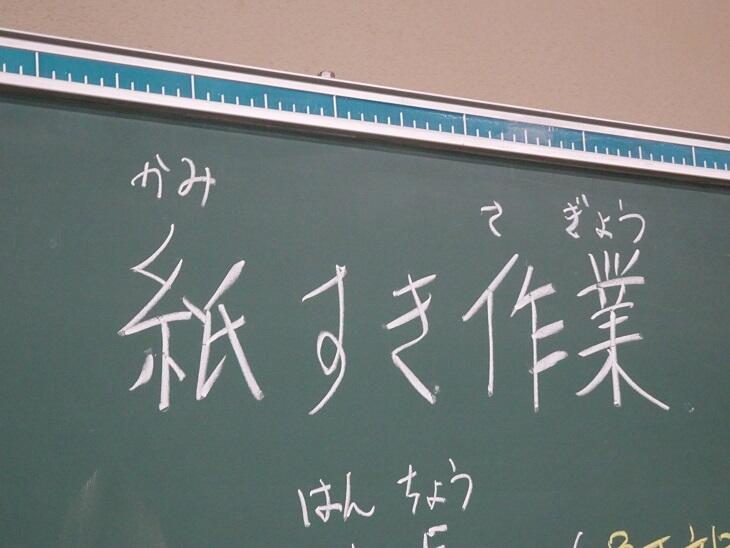 かみ さ ぎょう
紙すき作業
はん ちょう